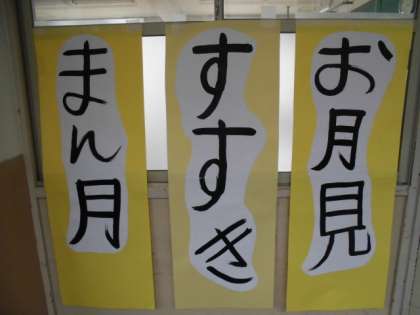 お月見
すすき
まん月